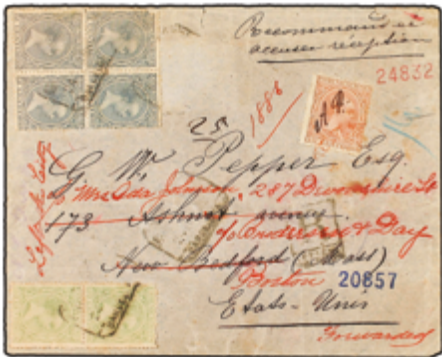 Recommandé et
accuser reception
24832
A.R.
1886
25
G. W. Pepper Esq
Left the City
Mrs Oda Johnson, 287 Devonshire St
173 Ashmet avenue.
c/o Anderson & Day
New Bedford (Mass)
Boston
20857
Etats-Unis
Forwarded